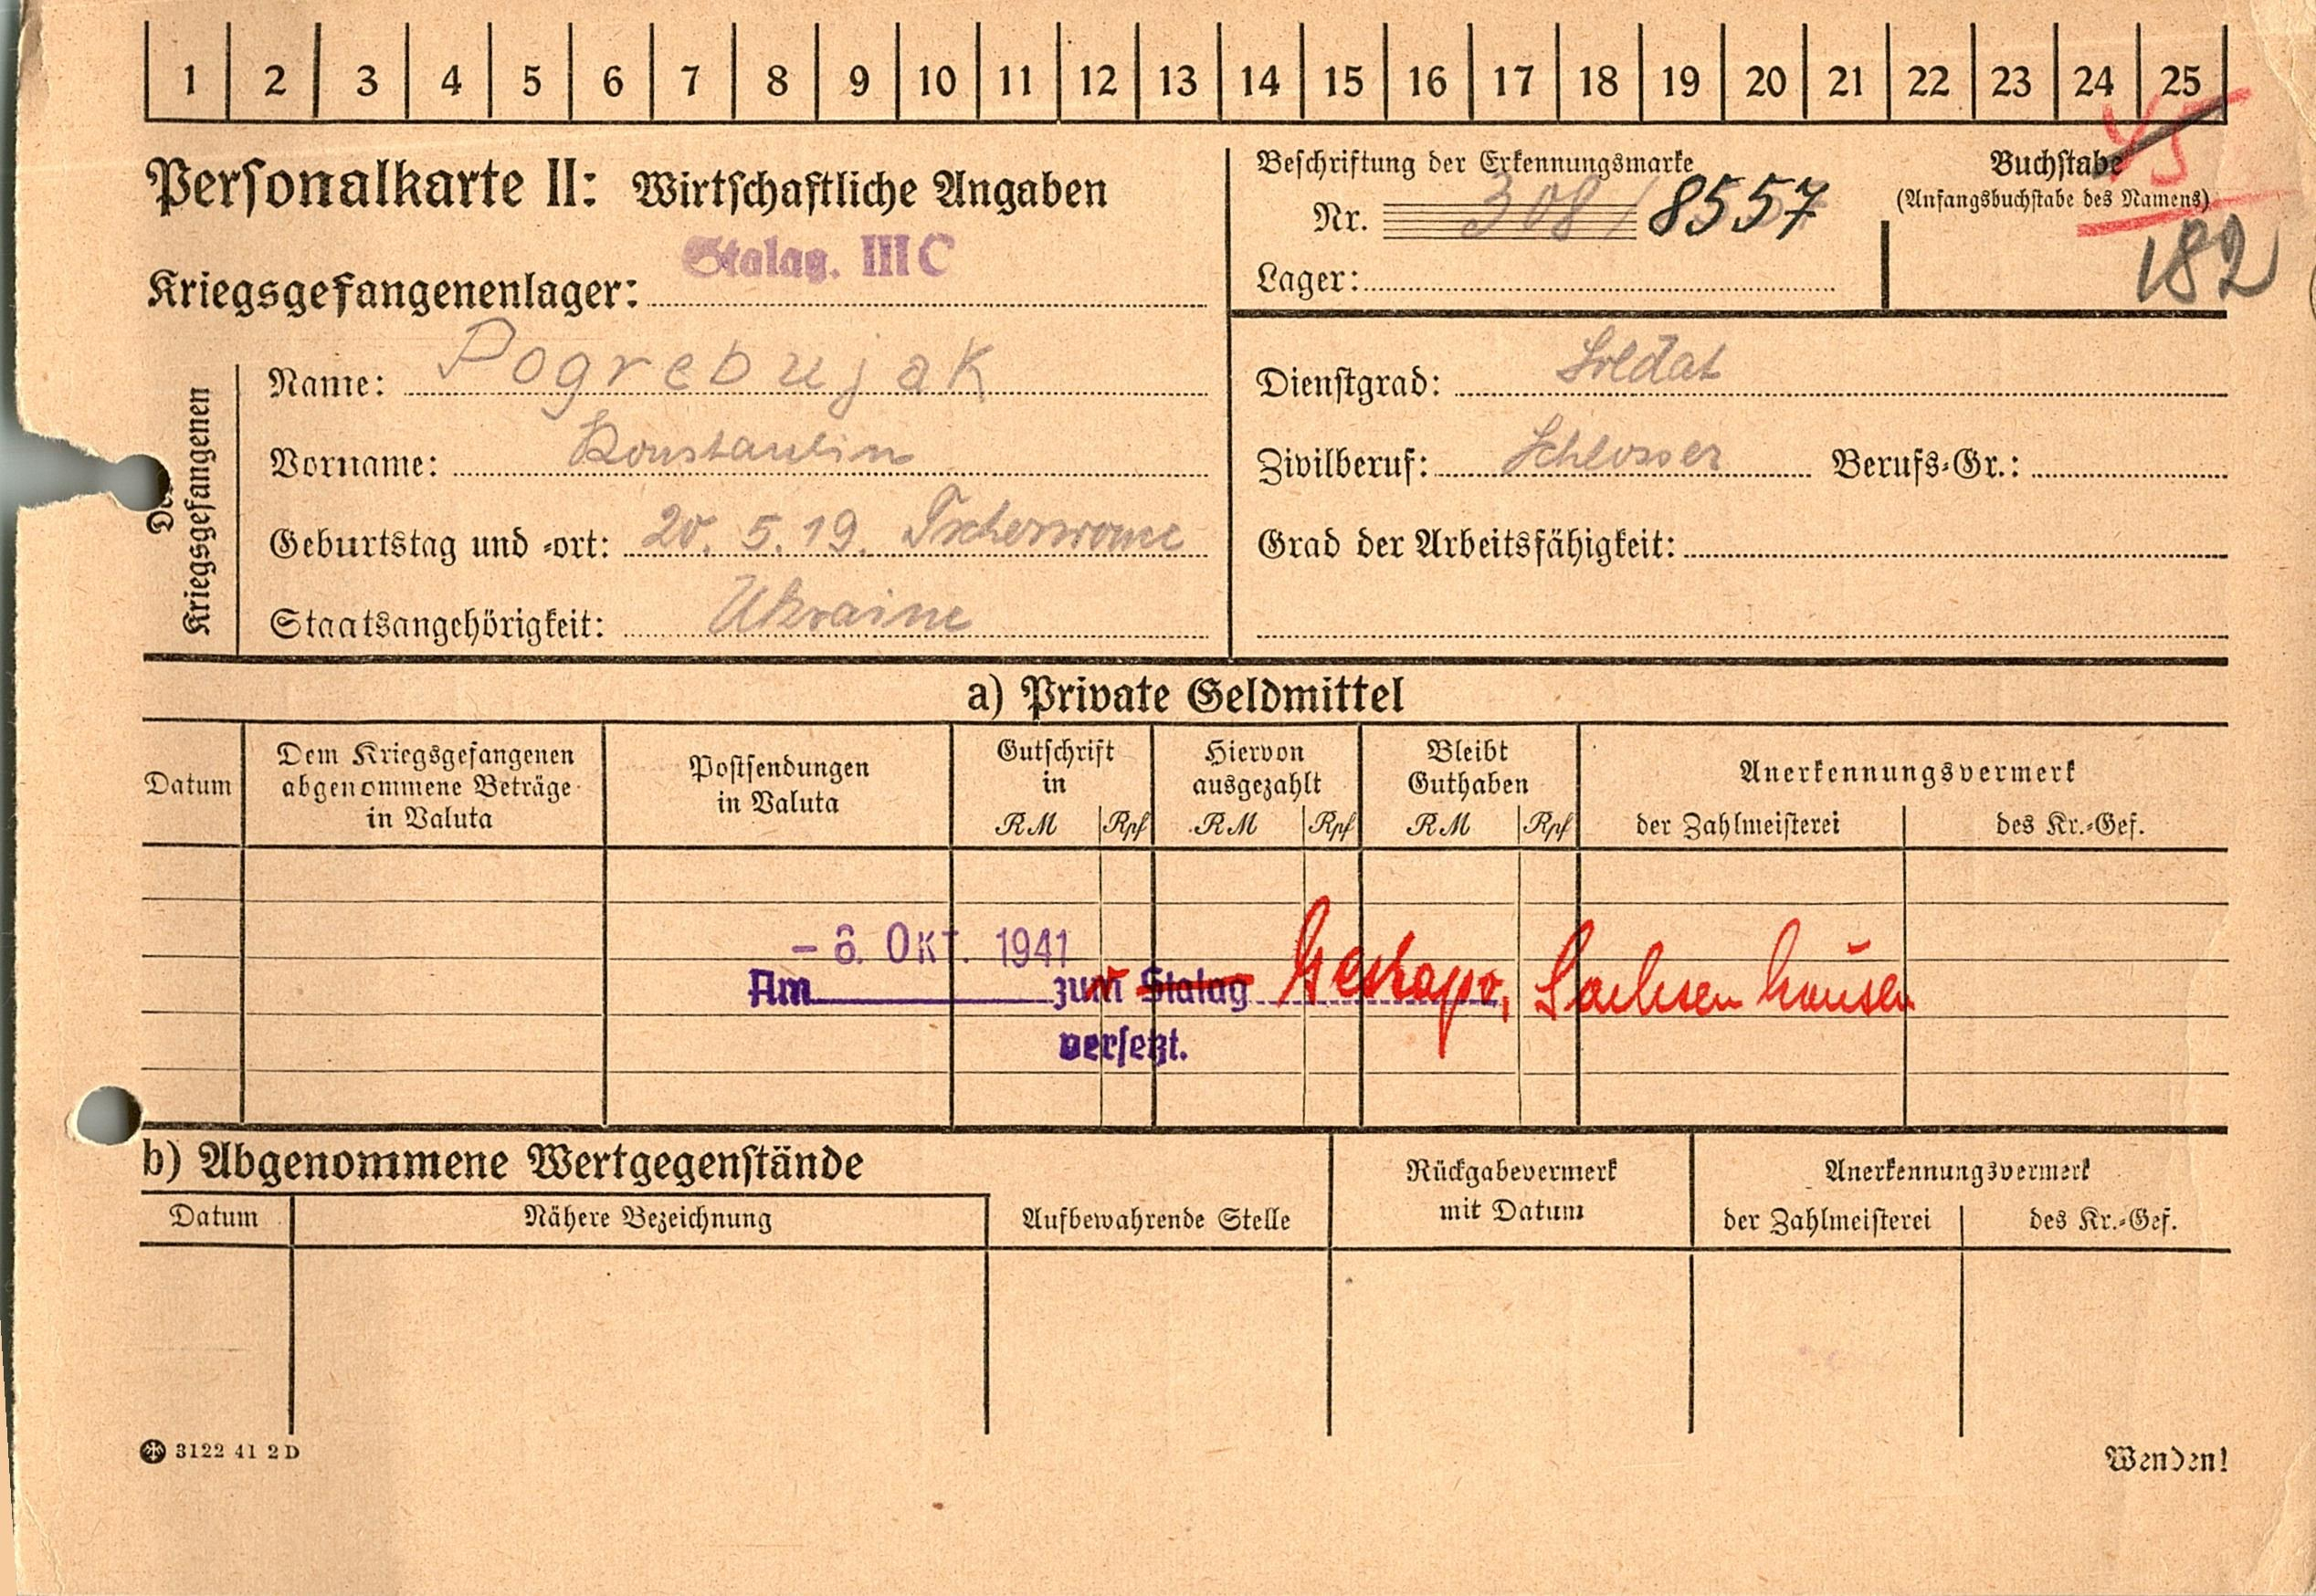 1 2 3 4 5 6 7 8 9 10 11 12 13 14 15 16 17 18 19 20 21 22 23 24 25
Personalkarte II: Wirtschaftliche Angaben
Stalag. III C
Kriegsgefangenenlager:
Beschriftung der Erkennungsmarke
Nr. 308 / 8557
Lager:
Buchstabe
(Anfangsbuchstabe des Namens)
45
182
Des Kriegsgefangenen
Name: Pogrebujak
Vorname: Konstantin
Geburtstag und -ort: 20. 5. 19.
Staatsangehörigkeit: Ukraine
Dienstgrad: Soldat
Zivilberuf: Schlosser Berufs-Gr.:
Grad der Arbeitsfähigkeit:
a) Private Geldmittel
Datum
Dem Kriegsgefangenen
abgenommene Beträge
in Valuta
Postsendungen
in Valuta
Gutschrift
in
RM Rpf
Hiervon
ausgezahlt
RM Rpf
Bleibt
Guthaben
RM Rpf
Anerkennungsvermerk
der Zahlmeisterei des Kr.-Gef.
- 6. OKT. 1941
Am zur Stalag Gestapo, Sachsenhausen
versetzt.
b) Abgenommene Wertgegenstände
Datum Nähere Bezeichnung
Aufbewahrende Stelle
Rückgabevermerk
mit Datum
Anerkennungsvermerk
der Zahlmeisterei des Kr.-Gef.
3122 41 2 D
Wenden!